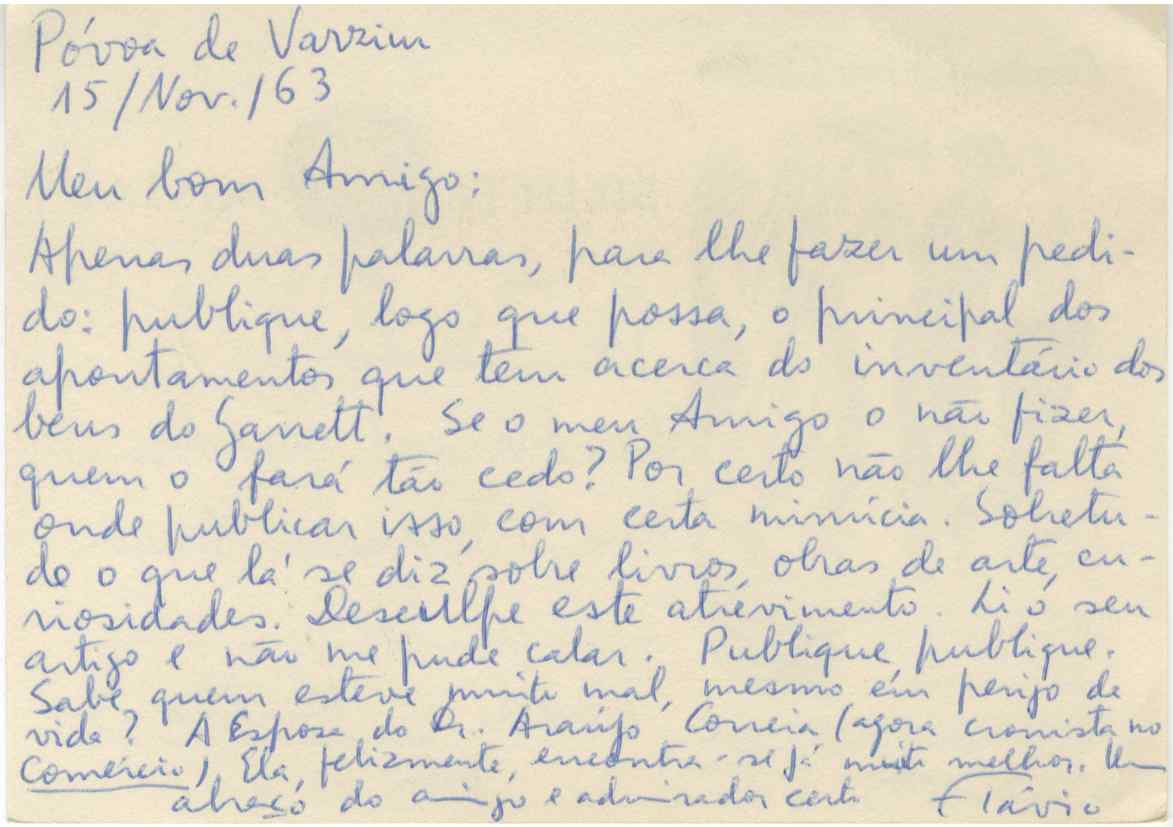 Póvoa de Varzim
15/Nov./63
Meu bom Amigo:
Apenas duas palavras, para lhe fazer um pedi-
do: publique, logo que possa, o principal dos
apontamentos que tem acerca do inventário dos
bens do Garrett. Se o meu Amigo o não fizer,
quem o fará tão cedo? Por certo não lhe falta
onde publicar isso, com certa minúcia. Sobretu-
do o que lá se diz sobre livros, obras de arte, cu-
riosidades. Desculpe este atrevimento. Li o seu
artigo e não me pude calar. Publique, publique.
Sabe quem esteve muito mal, mesmo em perigo de
vida? A Esposa do Dr. Araújo Correia (agora cronista no
Comércio). Ela, felizmente, encontra-se já muito melhor. Um
abraço do amigo e admirador certo Flávio